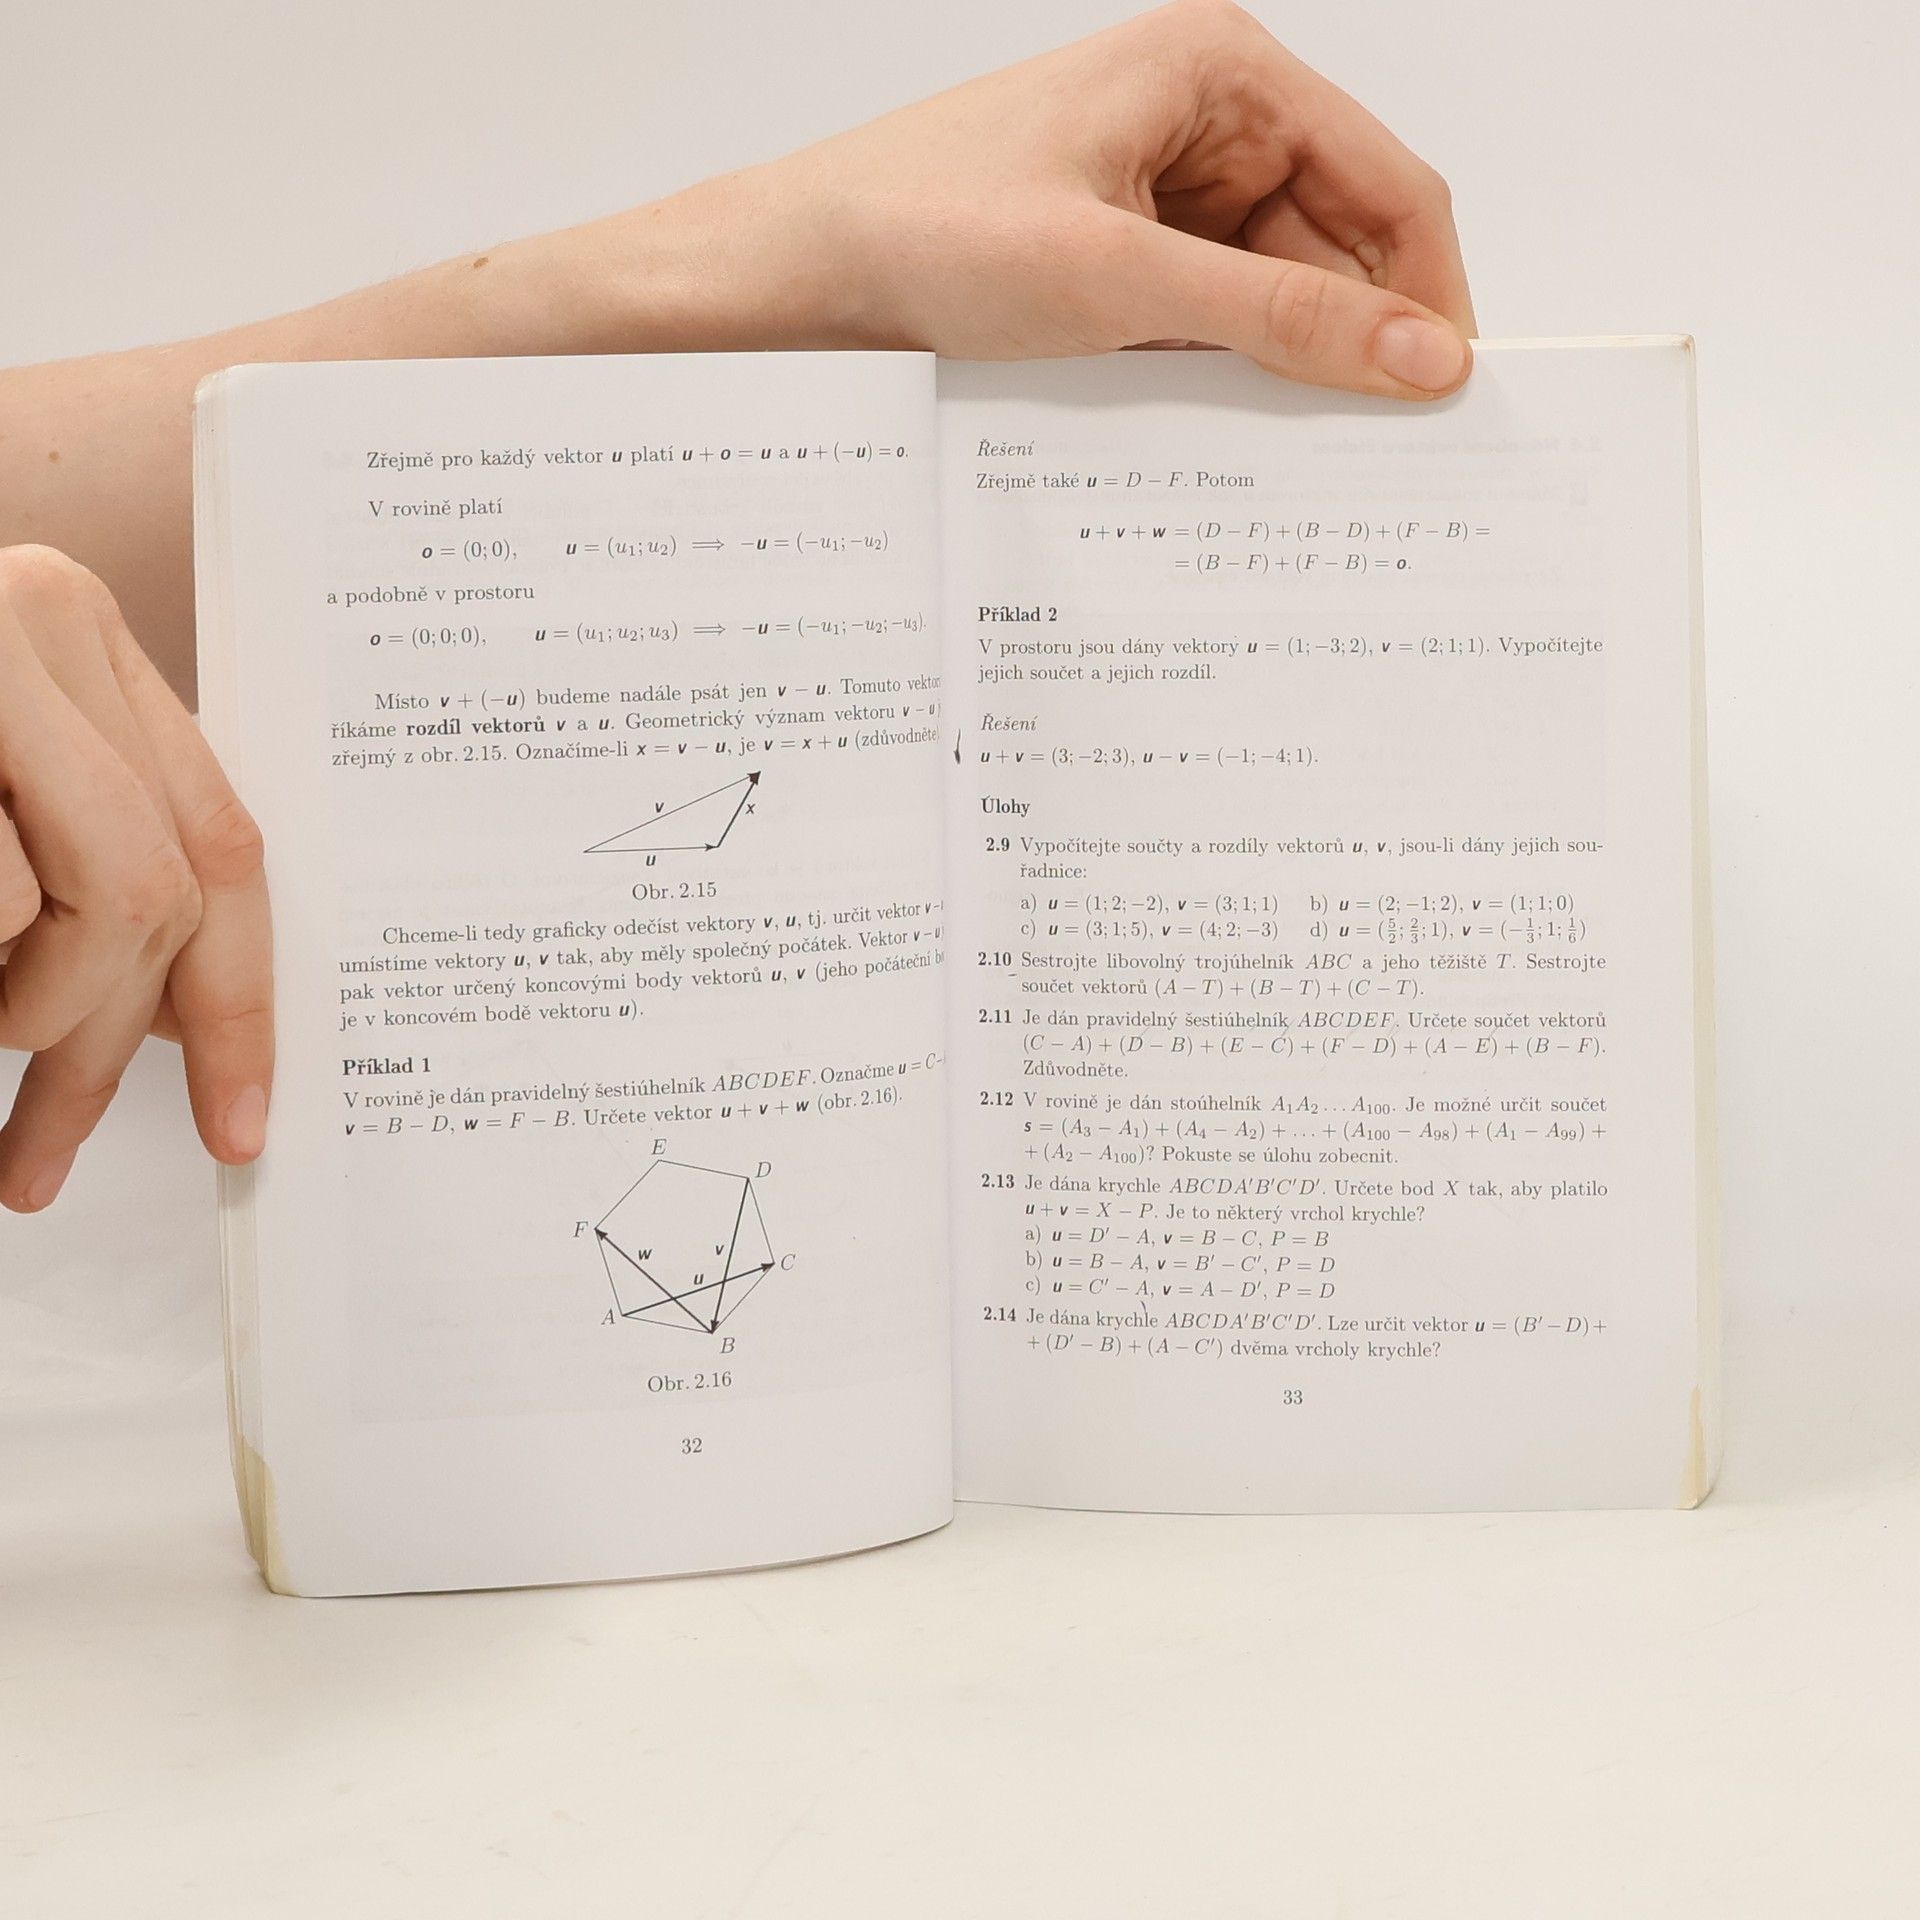 Zřejmě pro každý vektor u platí u + o = u a u + (−u) = o.
V rovině platí
o = (0; 0), u = (u₁; u₂) ⟹ −u = (−u₁; −u₂)
a podobně v prostoru
o = (0; 0; 0), u = (u₁; u₂; u₃) ⟹ −u = (−u₁; −u₂; −u₃).
Místo v + (−u) budeme nadále psát jen v − u. Tomuto
říkáme rozdíl vektorů v a u. Geometrický význam vektoru v − u
zřejmý z obr. 2.15. Označíme-li x = v − u, je v = x + u (zdůvodněte
v
x
u
Obr. 2.15
Chceme-li tedy graficky odečíst vektory v, u, tj. určit vektor v −
umístíme vektory u, v tak, aby měly společný počátek. Vektor v − u
pak vektor určený koncovými body vektorů u, v (jeho počáteční
je v koncovém bodě vektoru u).
Příklad 1
V rovině je dán pravidelný šestiúhelník ABCDEF. Označme u = C −
v = B − D, w = F − B. Určete vektor u + v + w (obr. 2.16).
E
D
F
w
v
C
u
A
B
Obr. 2.16
32
Řešení
Zřejmě také u = D − F. Potom
u + v + w = (D − F) + (B − D) + (F − B) =
= (B − F) + (F − B) = o.
Příklad 2
V prostoru jsou dány vektory u = (1; −3; 2), v = (2; 1; 1). Vypočítejte
jejich součet a jejich rozdíl.
Řešení
u + v = (3; −2; 3), u − v = (−1; −4; 1).
Úlohy
2.9 Vypočítejte součty a rozdíly vektorů u, v, jsou-li dány jejich sou-
řadnice:
a) u = (1; 2; −2), v = (3; 1; 1) b) u = (2; −1; 2), v = (1; 1; 0)
c) u = (3; 1; 5), v = (4; 2; −3) d) u = (5/2; 2/3; 1), v = (−1/3; 1; 1/6)
2.10 Sestrojte libovolný trojúhelník ABC a jeho těžiště T. Sestrojte
součet vektorů (A − T) + (B − T) + (C − T).
2.11 Je dán pravidelný šestiúhelník ABCDEF. Určete součet vektorů
(C − A) + (D − B) + (E − C) + (F − D) + (A − E) + (B − F).
Zdůvodněte.
2.12 V rovině je dán stoúhelník A₁A₂ . . . A₁₀₀. Je možné určit součet
s = (A₃ − A₁) + (A₄ − A₂) + . . . + (A₁₀₀ − A₉₈) + (A₁ − A₉₉) +
+ (A₂ − A₁₀₀)? Pokuste se úlohu zobecnit.
2.13 Je dána krychle ABCDA′B′C′D′. Určete bod X tak, aby platilo
u + v = X − P. Je to některý vrchol krychle?
a) u = D′ − A, v = B − C, P = B
b) u = B − A, v = B′ − C′, P = D
c) u = C′ − A, v = A − D′, P = D
2.14 Je dána krychle ABCDA′B′C′D′. Lze určit vektor u = (B′ − D) +
+ (D′ − B) + (A − C′) dvěma vrcholy krychle?
33